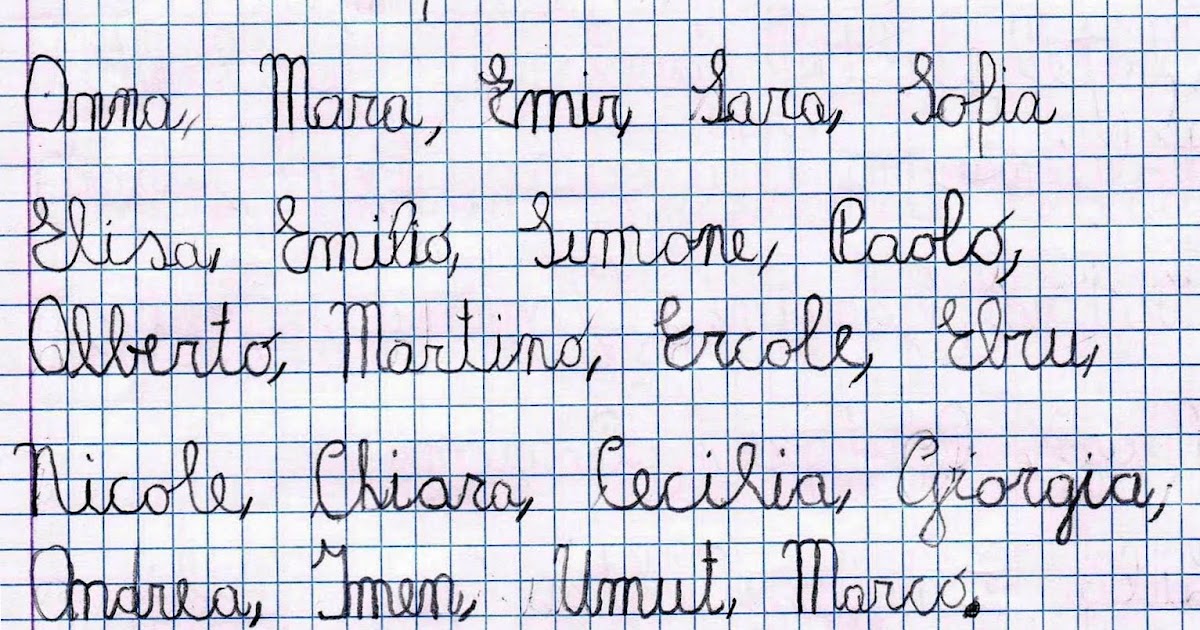 Anna, Mara, Emir, Sara, Sofia
Elisa, Emilio, Simone, Paolo,
Alberto, Martino, Ercole, Ebru,
Nicole, Chiara, Cecilia, Giorgia,
Andrea, Imen, Umut, Marco.